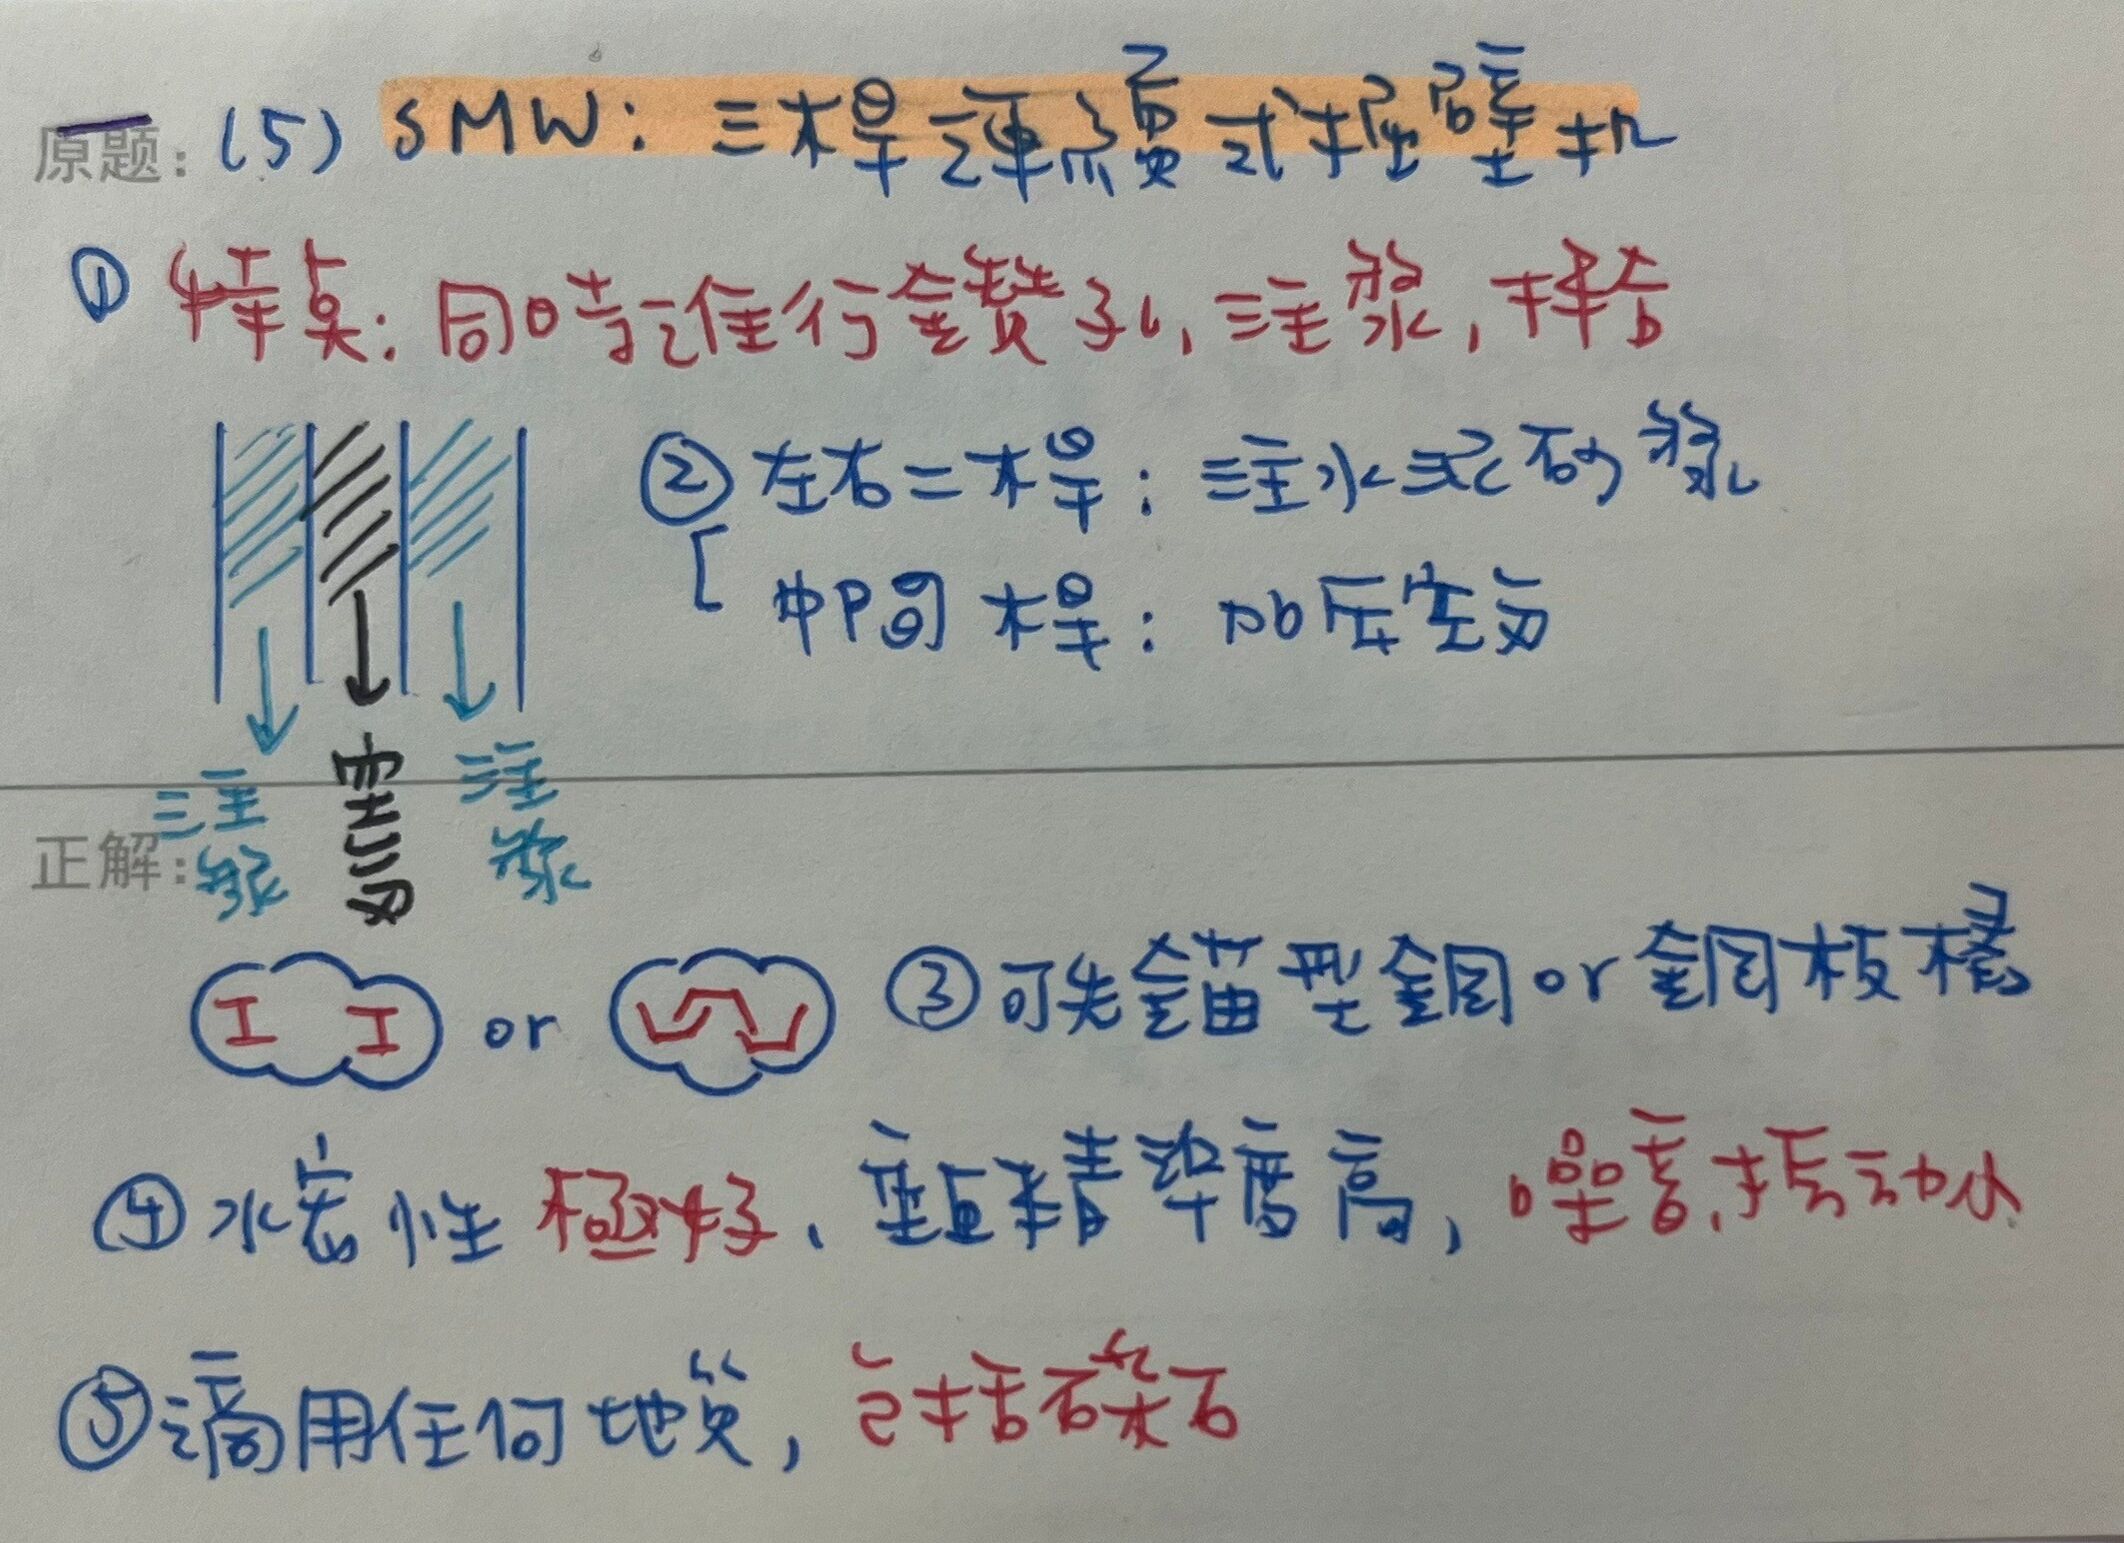 原题: (5) SMW: 三桿連續式掘壁机
① 特点: 同時進行鑽孔, 注漿, 拌合
② 左右二桿: 注水泥砂漿
中間桿: 加压空氣
注漿
空氣
注漿
正解:
or
③ 可先錨型鋼 or 鋼板樁
④ 水密性極好、垂直精準度高, 噪音, 振动小
⑤ 適用任何地質, 包括石礫石